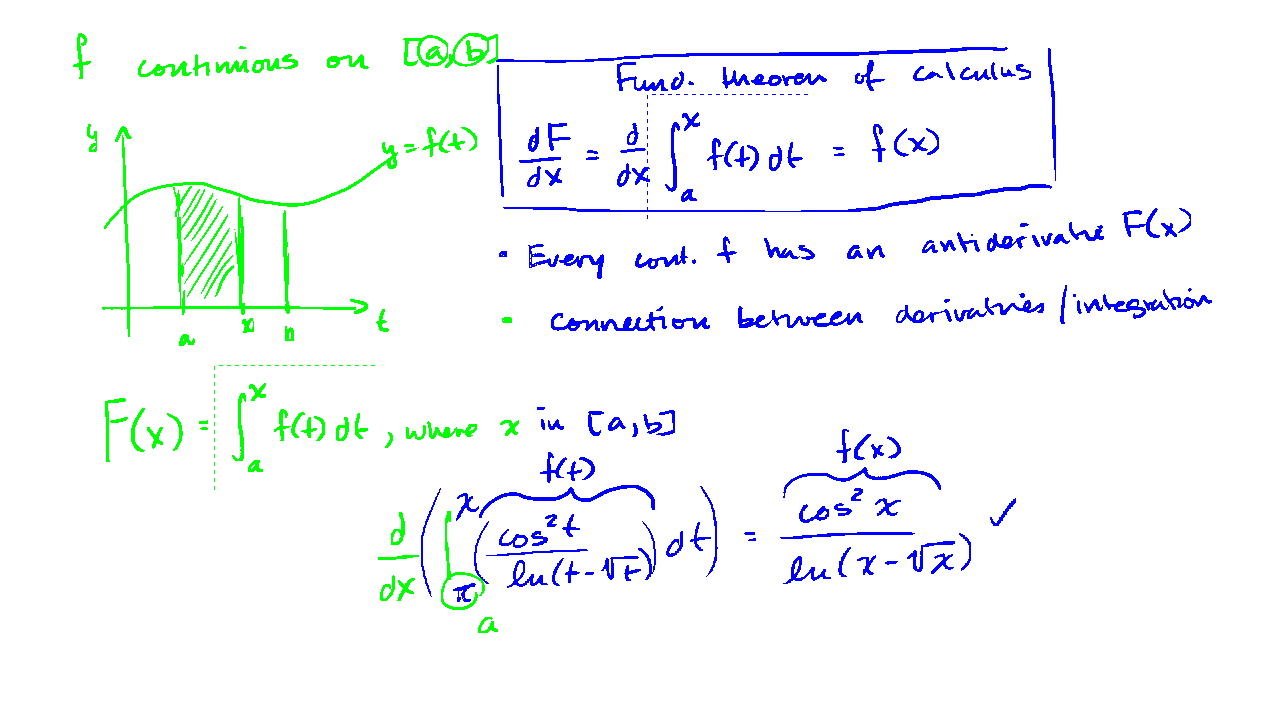 f continuous on [a, b]
Fund. theorem of calculus
dF/dx = d/dx ∫_a^x f(t) dt = f(x)
y
y = f(t)
a x b t
• Every cont. f has an antiderivative F(x)
• Connection between derivatives / integration
F(x) = ∫_a^x f(t) dt, where x in [a, b]
f(t) f(x)
d/dx ( ∫_π^x ( cos² t / ln(t - √t) ) dt ) = cos² x / ln(x - √x) ✓
a